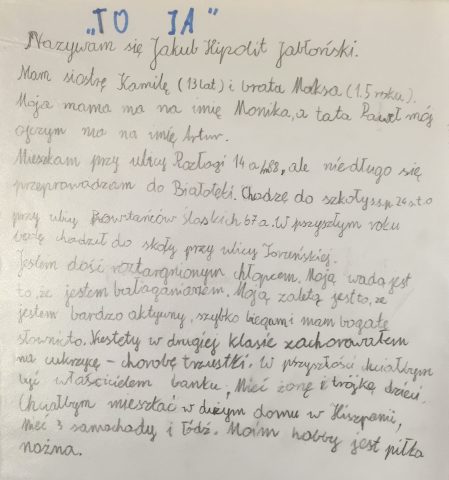 „TO JA"
Nazywam się Jakub Hipolit Jabłoński.
Mam siostrę Kamilę (13 lat) i brata Maksa (1.5 roku).
Moja mama ma na imię Monika, a tata Paweł mój
ojczym ma na imię Artur.
Mieszkam przy ulicy Rozłogi 14 a, ale niedługo się
przeprowadzam do Białołęki. Chodzę do szkoły
przy ulicy Powstańców Śląskich 67a. W przyszłym roku
będę chodził do skoły przy ulicy Toruńskiej.
Jestem dość roztargnionym chłopcem. Moją wadą jest
to, że jestem bałaganiarzem. Moją zaletą jest to, że
jestem bardzo aktywny, szybko biegam i mam bogate
słownictwo. Niestety w drugiej klasie zachorowałem
na cukrzycę – chorobę trzustki. W przyszłości chciałbym
być właścicielem banku, Mieć żonę i trójkę dzieci.
Chciałbym mieszkać w dużym domu w Hiszpanii,
mieć 3 samochody i łódź. Moim hobby jest piłka
nożna.